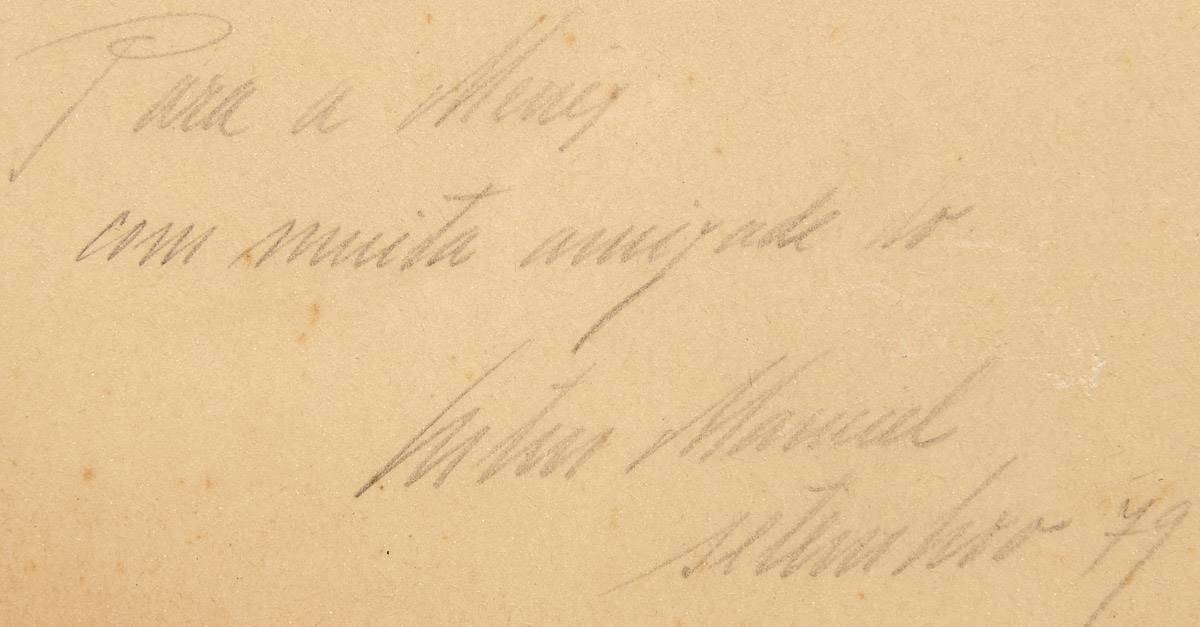 Para a
com muita amizade do
Artur Manuel
setembro 79